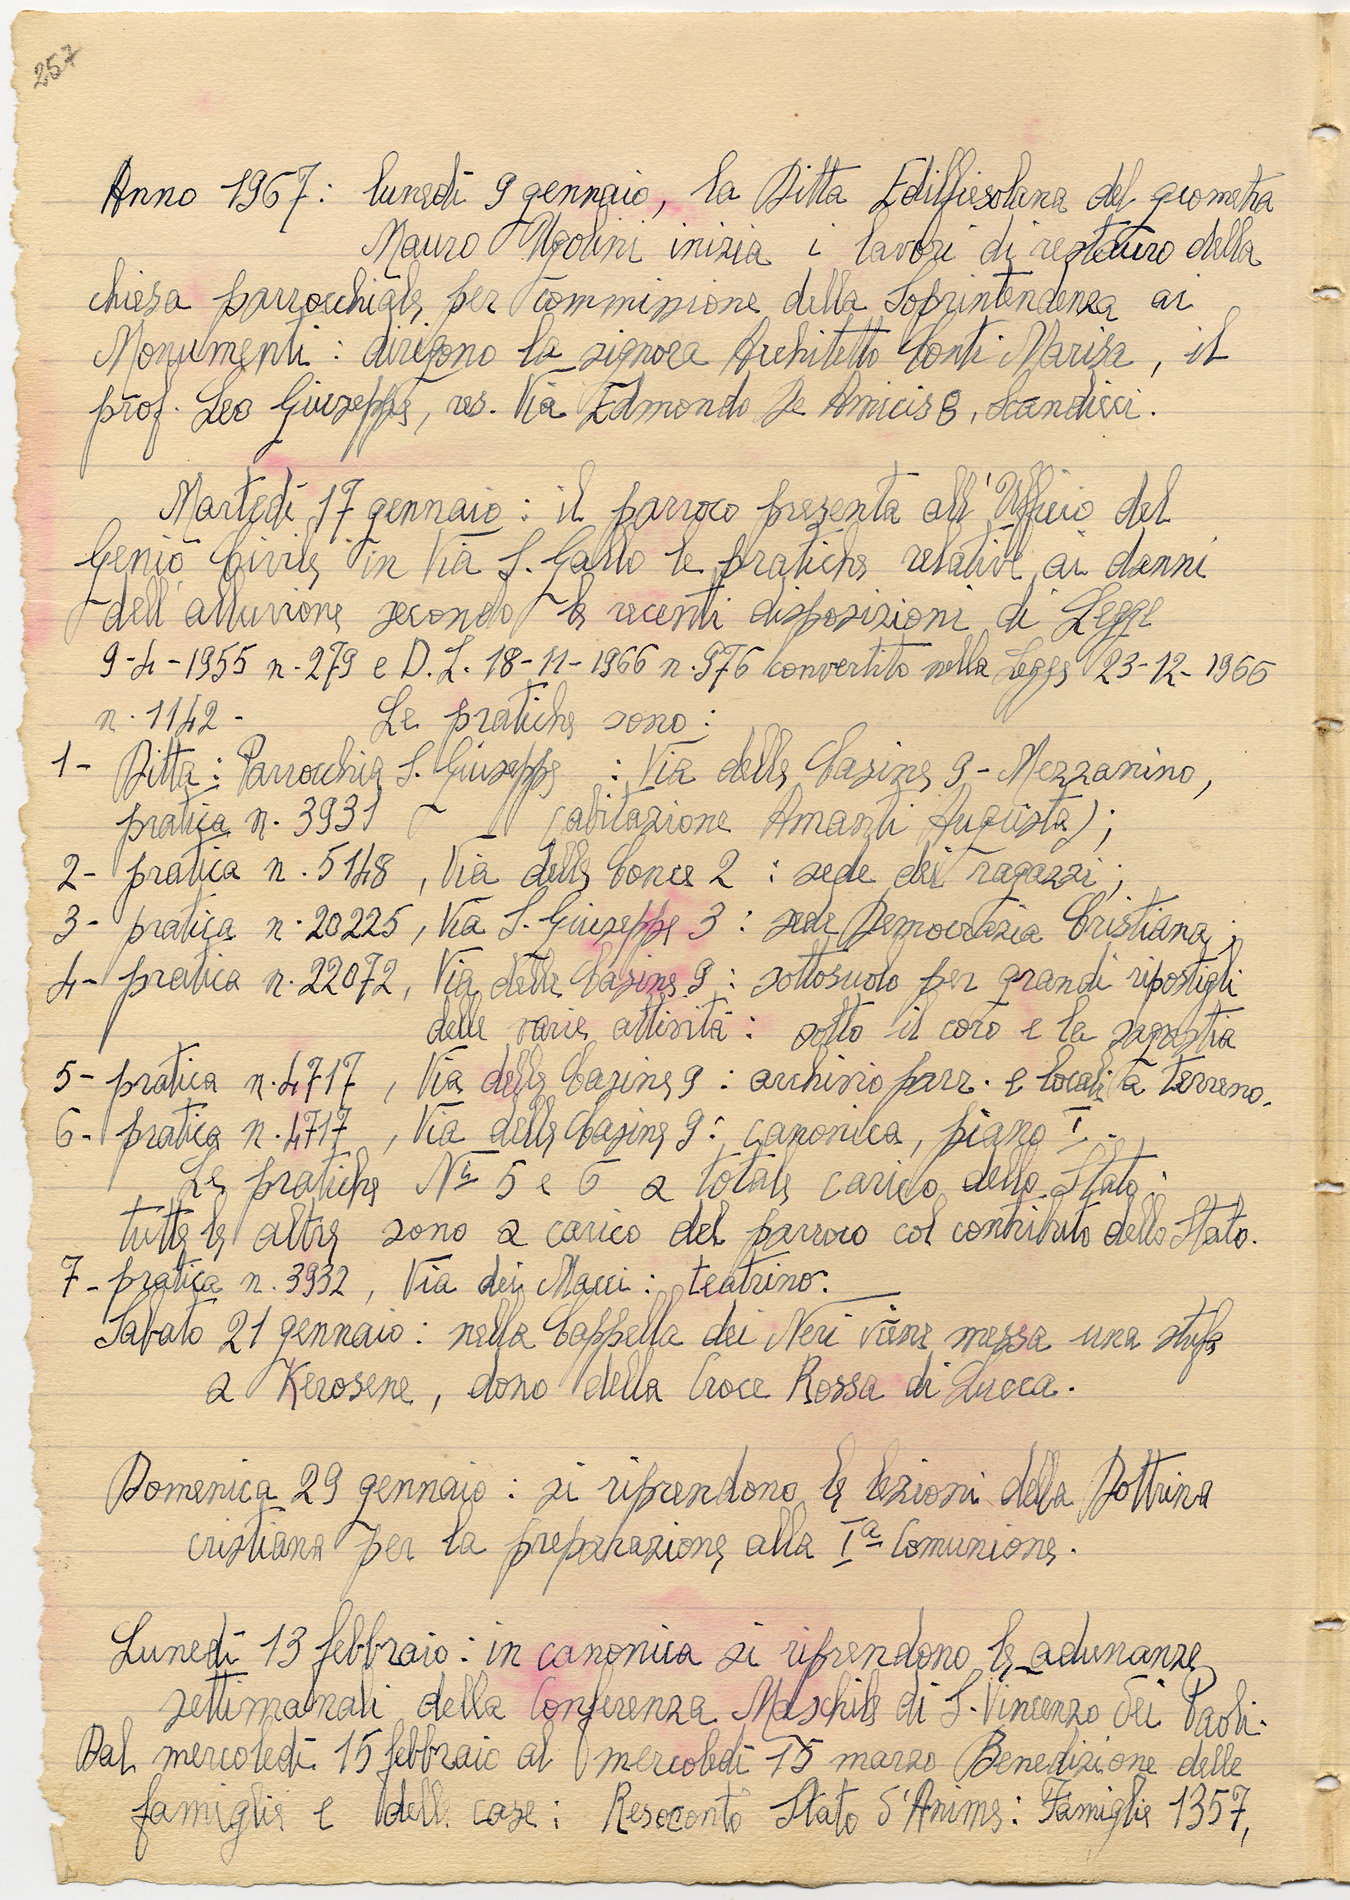 257
Anno 1967: lunedì 9 gennaio, la Ditta Edilfiesolana del geometra
Mauro Ugolini inizia i lavori di restauro della
chiesa parrocchiale per commissione della Soprintendenza ai
Monumenti: dirigono la signora Architetto Conti Marisa, il
prof. Leo Giuseppe, res. Via Edmondo De Amicis 8, Scandicci.
Martedì 17 gennaio: il parroco presenta all'Ufficio del
Genio Civile in Via S. Gallo le pratiche relative ai danni
dell'alluvione secondo le recenti disposizioni di Legge
9-4-1955 n. 279 e D.L. 18-11-1966 n. 976 convertito nella Legge 23-12-1966
n. 1142- Le pratiche sono:
1- Ditta: Parrocchia S. Giuseppe : Via delle Casine 9 - Mezzanino,
pratica n. 3931 - (abitazione Amanti Augusta);
2- pratica n. 5148, Via delle Conce 2 : sede dei ragazzi;
3- pratica n. 20225, Via S. Giuseppe 3 : sede Democrazia Cristiana;
4- pratica n. 22072, Via delle Casine 9 : sottosuolo per grandi ripostigli
delle varie attività : sotto il coro e la sagrestia
5- pratica n. 4717, Via delle Casine 9 : archivio parr. e locali a terreno.
6- pratica n. 4717, Via delle Casine 9 : canonica, piano I.
Le pratiche Ni 5 e 6 a totale carico dello Stato:
tutte le altre sono a carico del parroco col contributo dello Stato.
7- pratica n. 3932, Via dei Macci : teatrino.
Sabato 21 gennaio : nella Cappella dei Neri viene messa una stufa
a Kerosene, dono della Croce Rossa di Lucca.
Domenica 29 gennaio : si riprendono le lezioni della Dottrina
cristiana per la preparazione alla Iª Comunione.
Lunedì 13 febbraio : in canonica si riprendono le adunanze
settimanali della Conferenza Maschile di S. Vincenzo dei Paoli.
Dal mercoledì 15 febbraio al mercoledì 15 marzo Benedizione delle
famiglie e delle case : Resoconto Stato d'Anime : Famiglie 1357,